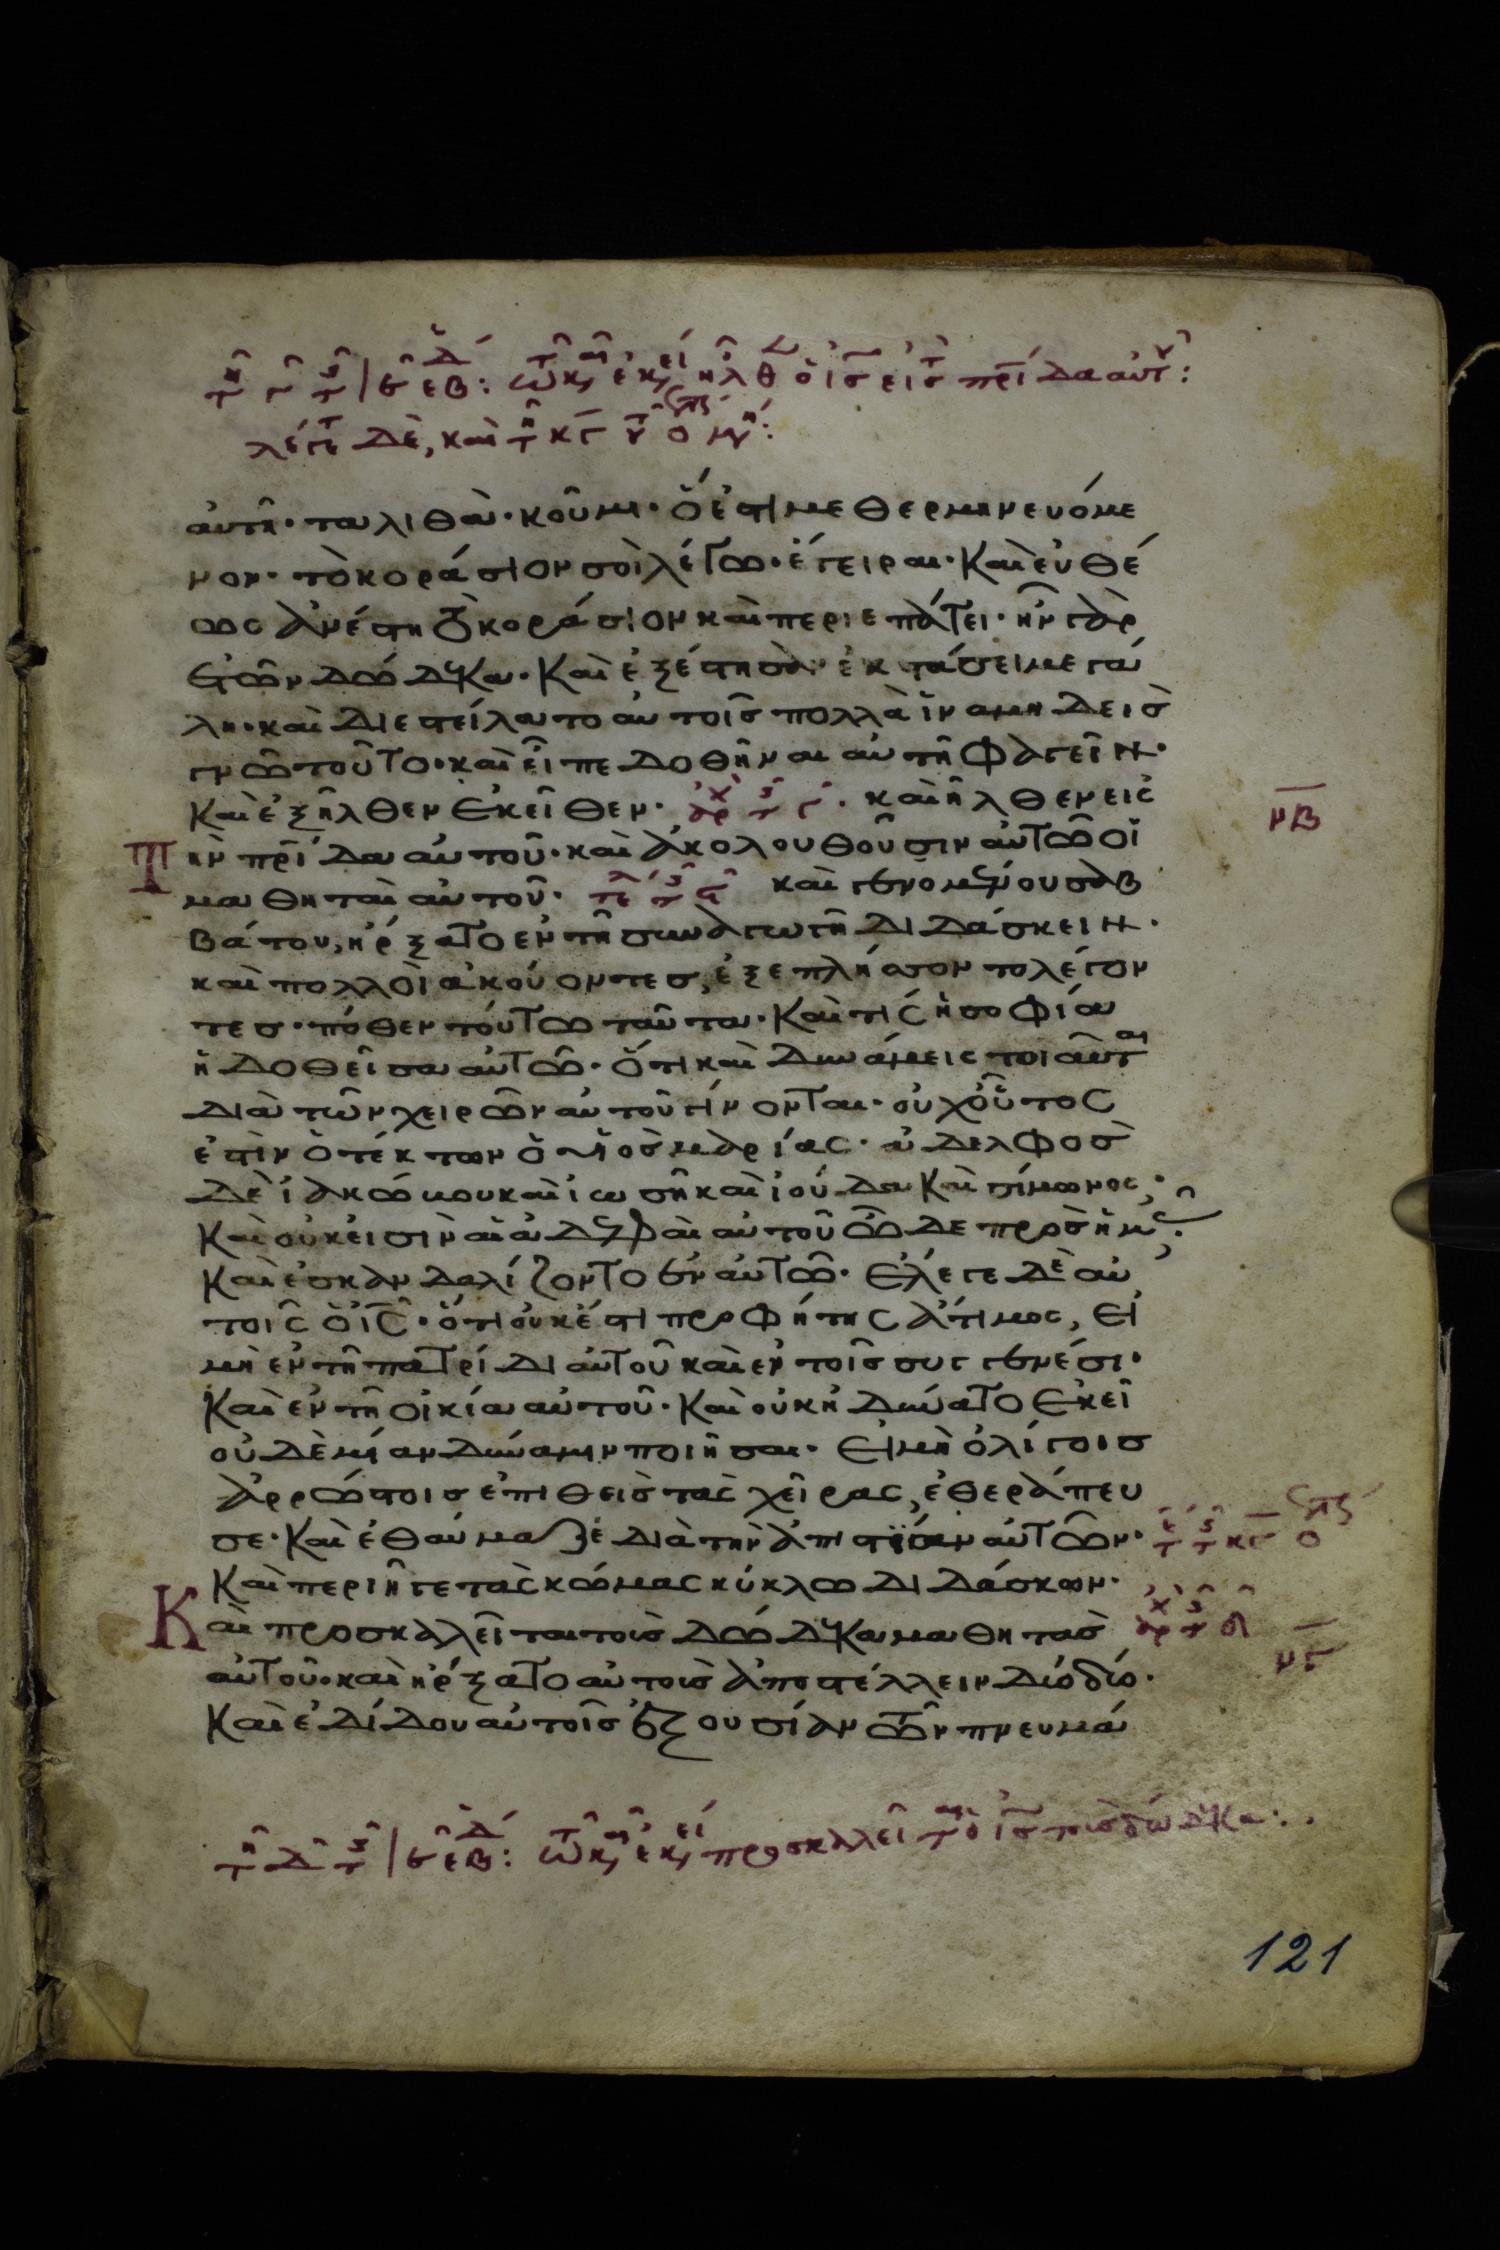 αὐτῆ· ταλιθὰ· κοῦμι· ὅ ἐστι μεθερμηνευόμε
νον· τὸ κοράσιον σοὶ λέγω· ἔγειραι· Καὶ εὐθέ
ως ἀνέστη τὸ κοράσιον καὶ περιεπάτει· ἦν γὰρ
ἐτῶν δώδεκα· Καὶ ἐξέστησαν ἐκστάσει μεγά
λη· καὶ διεστείλατο αὐτοῖς πολλὰ ἵνα μηδεὶς
γνῶ τοῦτο· καὶ εἶπε δοθῆναι αὐτῆ φαγεῖν·
Καὶ ἐξῆλθεν ἐκεῖθεν· καὶ ἦλθεν εἰς
Τὴν πρίδα αὐτοῦ· καὶ ἀκολουθοῦσιν αὐτῶ οἱ
μαθηταὶ αὐτοῦ· καὶ γενομένου σαβ
βάτου, ἤρξατο ἐν τῆ συναγωγῆ διδάσκειν·
καὶ πολλοὶ ἀκούοντες, ἐξεπλήσσοντο λέγον
τες· πόθεν τούτω ταῦτα· Καὶ τίς ἡ σοφία
ἡ δοθεῖσα αὐτῶ· ὅτι καὶ δυνάμεις τοιαῦται
διὰ τῶν χειρῶν αὐτοῦ γίνονται· οὐχ οὗτος
ἐστὶν ὁ τέκτων ὁ υἱὸς μαρίας· ἀδελφὸς
δὲ ἰακώβου καὶ ἰωσῆ καὶ ἰούδα Καὶ σίμωνος·
Καὶ οὐκ εἰσὶν αἱ ἀδελφαὶ αὐτοῦ ὧδε πρὸς ἡμᾶς;
Καὶ ἐσκανδαλίζοντο ἐν αὐτῶ· ἔλεγε δὲ αὐ
τοῖς ὁ ις· ὅτι οὐκ ἔστι προφήτης ἄτιμος, εἰ
μὴ ἐν τῆ πατρίδι αὐτοῦ καὶ ἐν τοῖς συγγενέσι·
Καὶ ἐν τῆ οἰκία αὐτοῦ· Καὶ οὐκ ἠδύνατο ἐκεῖ
οὐδὲ μίαν δύναμιν ποιῆσαι· εἰ μὴ ὀλίγοις
ἀρρώστοις ἐπιθεὶς τὰς χεῖρας, ἐθεράπευ
σε· Καὶ ἐθαύμαζε διὰ τὴν ἀπιστίαν αὐτῶν·
Καὶ περιῆγε τὰς κώμας κύκλω διδάσκων·
Καὶ προσκαλεῖται τοὺς δώδεκα μαθητὰς
αὐτοῦ· καὶ ἤρξατο αὐτοὺς ἀποστέλλειν δύο δύο·
Καὶ ἐδίδου αὐτοῖς ἐξουσίαν τῶν πνευμά
νβ
νγ
121